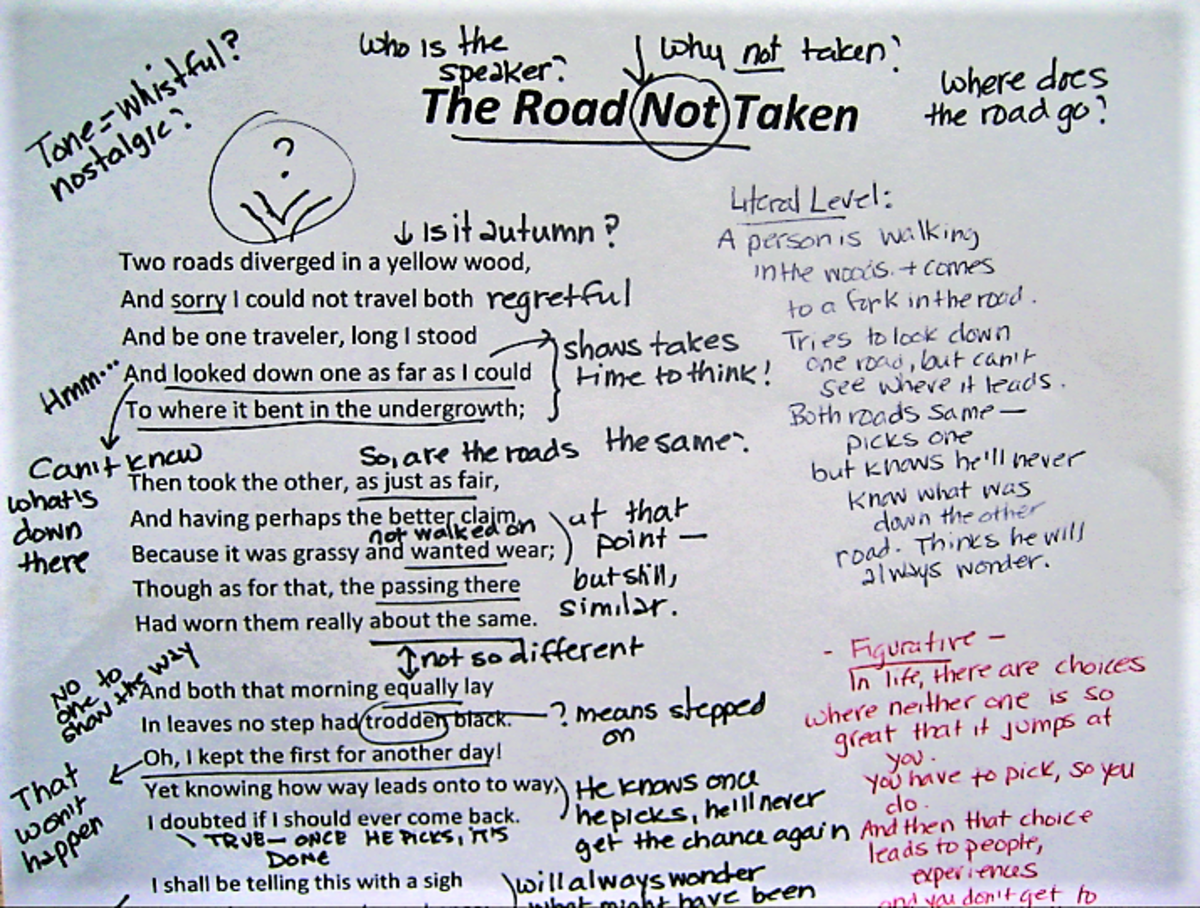 Tone = whistful?
nostalgic?
Who is the
speaker?
Why not taken?
Where does
the road go?
The Road Not Taken
?
Is it autumn?
Two roads diverged in a yellow wood,
And sorry I could not travel both
regretful
And be one traveler, long I stood
And looked down one as far as I could
To where it bent in the undergrowth;
shows takes
time to think!
Hmm...
Can't know
what's
down
there
So, are the roads the same?
Then took the other, as just as fair,
And having perhaps the better claim,
not walked on
Because it was grassy and wanted wear;
Though as for that, the passing there
Had worn them really about the same.
at that
point —
but still,
similar.
not so different
No
one to
show the way
And both that morning equally lay
In leaves no step had trodden black.
? means stepped
on
Oh, I kept the first for another day!
That
won't
happen
Yet knowing how way leads onto to way,
I doubted if I should ever come back.
He knows once
he picks, he'll never
get the chance again
TRUE — ONCE HE PICKS, IT'S
DONE
I shall be telling this with a sigh
will always wonder
what might have been
Literal Level:
A person is walking
in the woods + comes
to a fork in the road.
Tries to look down
one road, but can't
see where it leads.
Both roads same —
picks one
but knows he'll never
know what was
down the other
road. Thinks he will
always wonder.
- Figurative -
In life, there are choices
where neither one is so
great that it jumps at
you.
You have to pick, so you
do.
And then that choice
leads to people,
experiences
and you don't get to